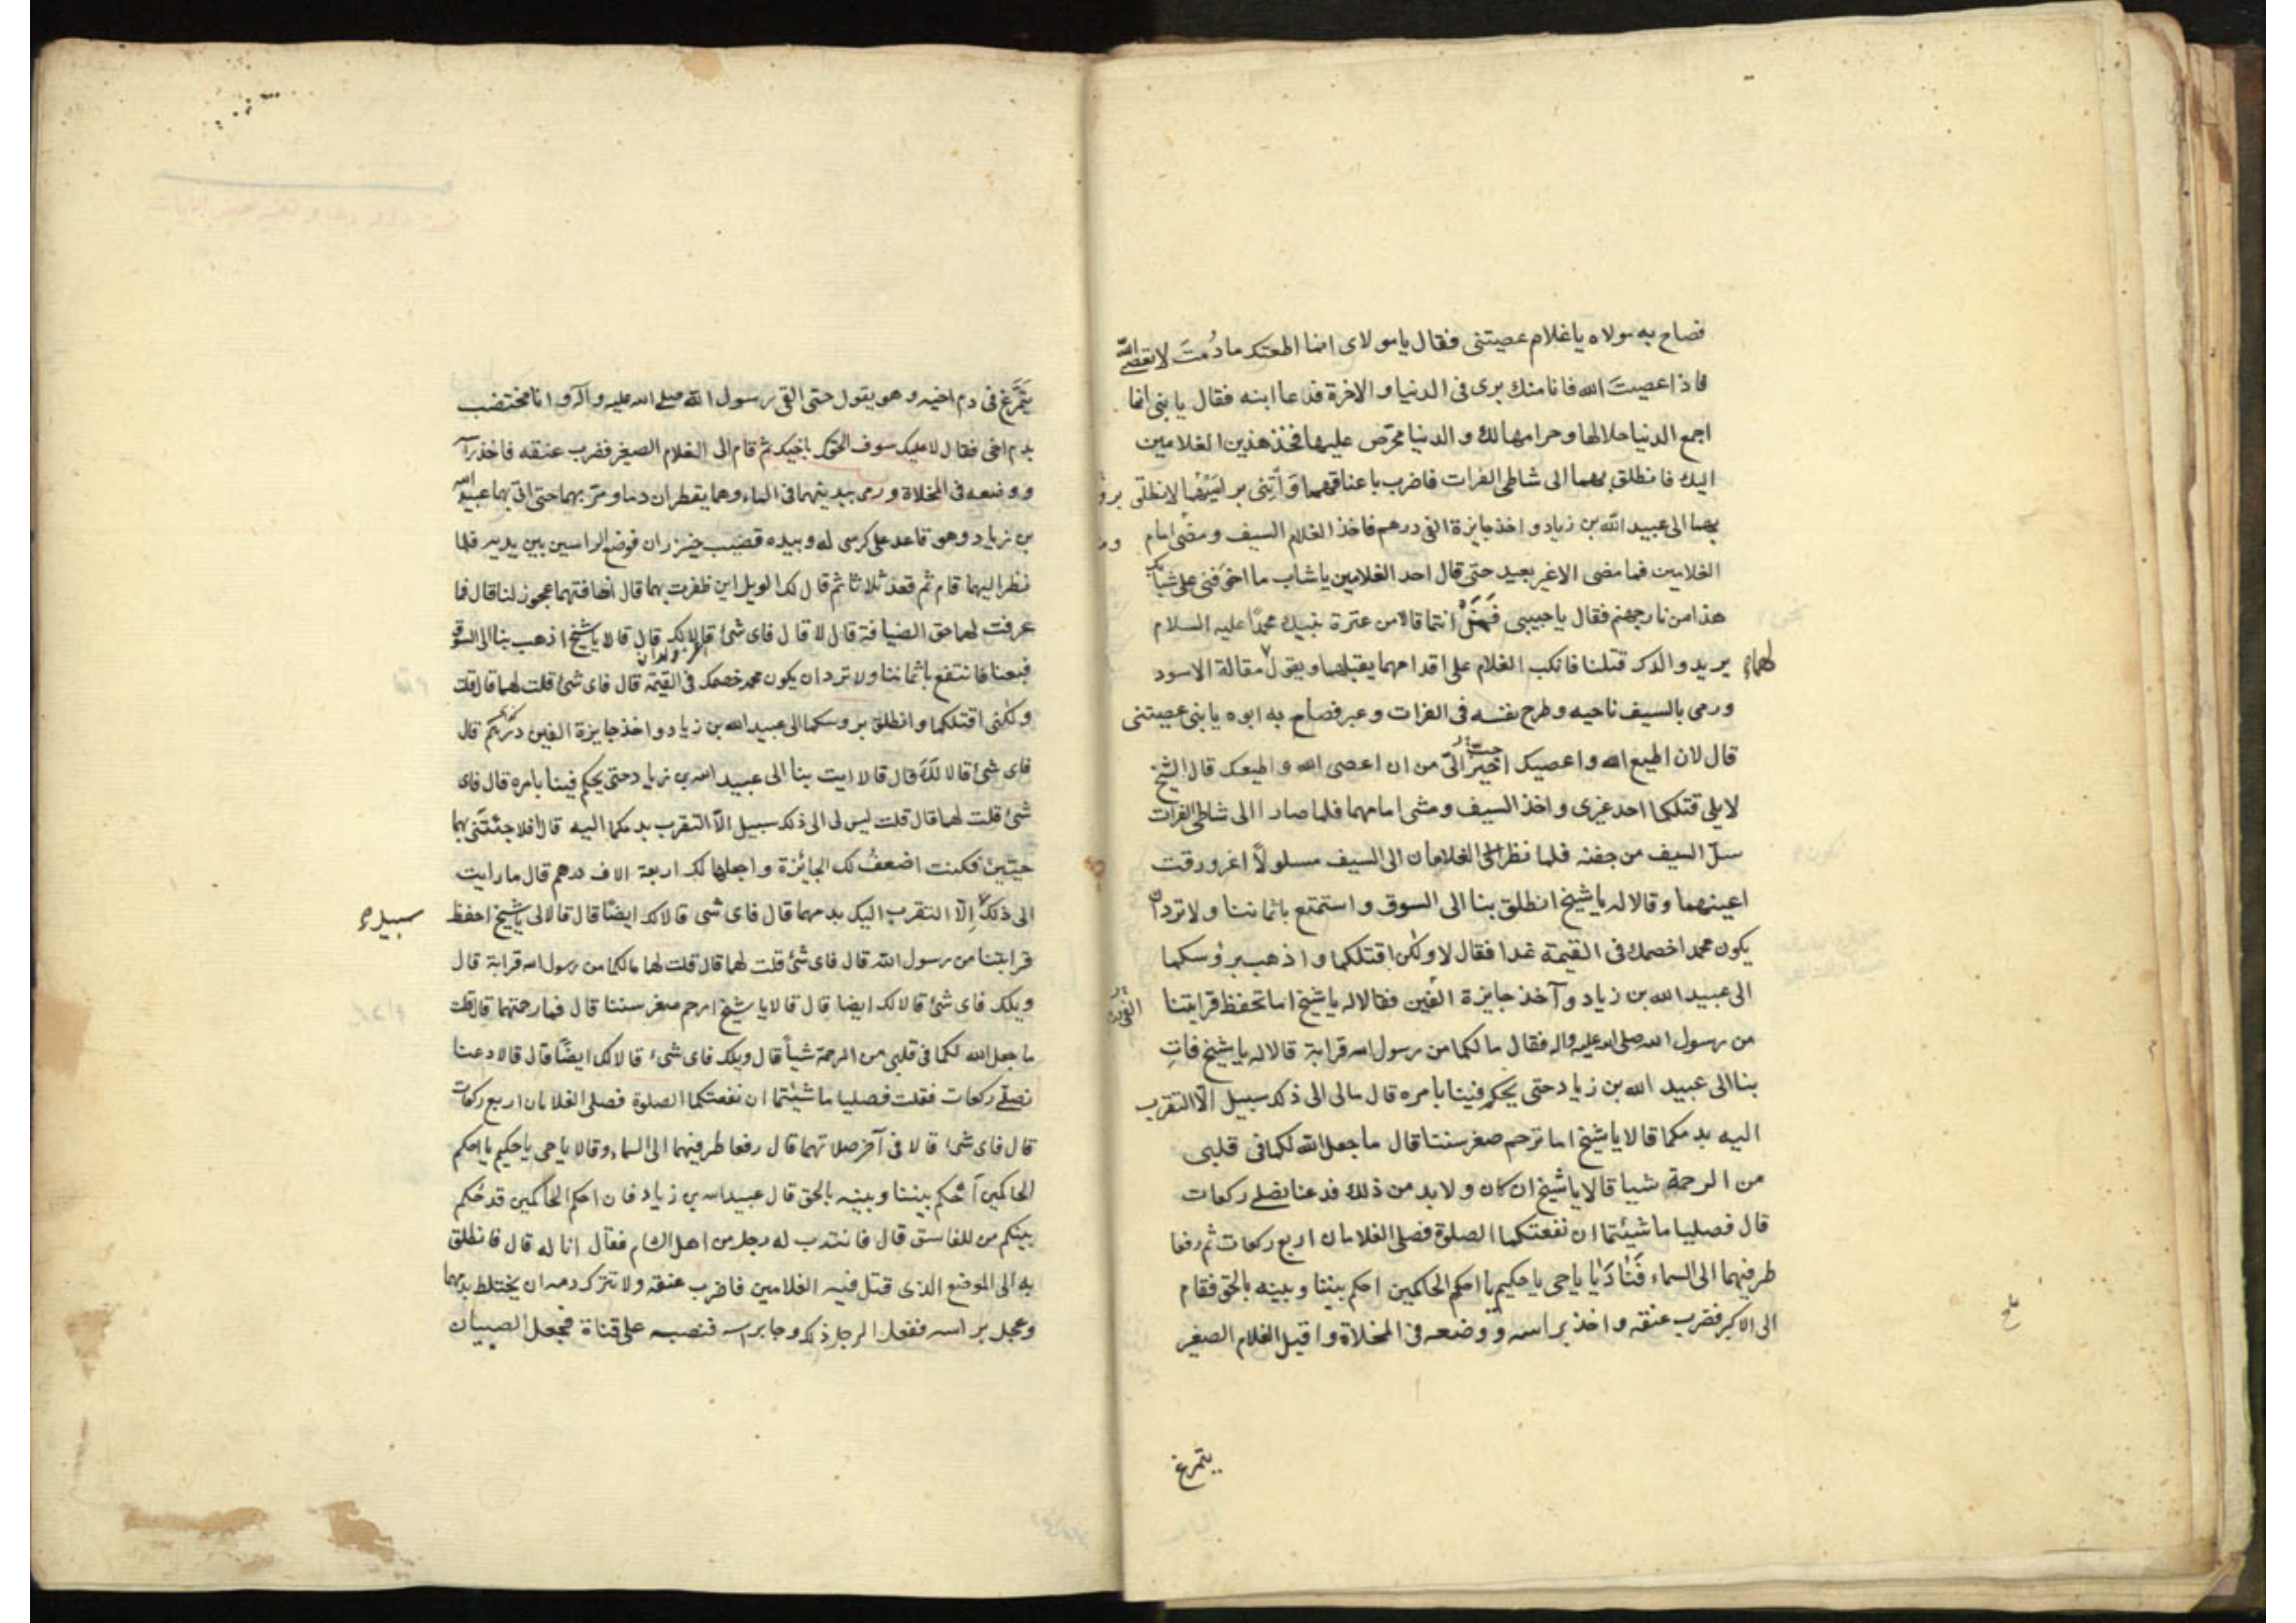 فصاح به مولاه يا غلام عصيتنى فقال يا مولاى انما اطعتك ما دُمتَ لا تعصى الله
فاذا عصيتَ الله فانا منك برى فى الدنيا و الاخرة فدعا ابنه فقال يا بنى انما
اجمع الدنيا حلالها و حرامها لك و الدنيا محرّص عليها فخذ هذين الغلامين
اليك فانطلق بهما الى شاطى الفرات فاضرب باعناقهما وَأتِنى برؤسهما لانطلق برؤ
بهما الى عبيد الله بن زياد و اخذ جايزة الفى درهم فاخذ الغلام السيف و مضى امام
الغلامين فما مضى الا غير بعيد حتى قال احد الغلامين يا شاب ما اخوفنى على شبابك
هذا من نار جهنم فقال يا حبيبى فمن انتما قالا من عترة نبيك محمد عليه السلام
يريد والدك قتلنا فانكب الغلام على اقدامهما يقبلهما و يقول لهما مقالة الاسود
ورمى بالسيف ناحيه و طرح نفسه فى الفرات و عبر فصاح به ابوه يا بنى عصيتنى
قال لان اطيع الله و اعصيك احبّ الىّ من ان اعصى الله و اطيعك قال الشيخ
لا يلى قتلكما احد غيرى و اخذ السيف و مشى امامهما فلما صارا الى شاطى الفرات
سلّ السيف من جفنه فلما نظر الغلامان الى السيف مسلولاً اغرورقت
اعينهما و قالا له يا شيخ انطلق بنا الى السوق و استمتع باثماننا و لا ترد ان
يكون محمد اخصمك فى القيمة غدا فقال لا ولكن اقتلكما و اذهب برؤسكما
الى عبيد الله بن زياد و آخذ جايزة الفين فقالا له يا شيخ اما تحفظ قرابتنا
من رسول الله صلى الله عليه و اله فقال ما لكما من رسول الله قرابة قالا له يا شيخ فاتِ
بنا الى عبيد الله بن زياد حتى يحكم فينا بامره قال مالى الى ذلك سبيل الّا التقرب
اليه بدمكما قالا يا شيخ اما ترحم صغر سننا قال ما جعل الله لكما فى قلبى
من الرحمة شيا قالا يا شيخ ان كان و لا بد من ذلك فدعنا نصلے ركعات
قال فصليا ما شيئتما ان نفعتكما الصلوة فصلى الغلامان اربع ركعات ثم رفعا
طرفيهما الى السماء فَنادَيا يا حى يا حكيم يا احكم الحاكمين احكم بيننا و بينه بالحق فقام
الى الاكبر فضرب عنقه و اخذ براسه و وضعه فى المخلاة و اقبل الغلام الصغير
يتمرغ
يَتَمَرَّغُ فى دم اخيه و هو يقول حتى القى رسول الله صلى الله عليه و آله و انا مختضب
بدم اخى فقال لا عليك سوف الحقك باخيك ثم قام الى الغلام الصغير فضرب عنقه فاخذ راسه
و وضعه فى المخلاة و رمى ببدنيهما فى الماء و هما يقطران دما و مرّ بهما حتى اتى بهما عبيد الله
بن زياد و هو قاعد على كرسى له و بيده قضيب خيزران فوضع الراسين بين يديه فلما
نظر اليهما قام ثم قعد ثلاثا ثم قال لك الويل اين ظفرت بهما قال اضافتهما عجوز لنا قال فما
عرفت لهما حق الضيافة قال لا قال فاى شئ قالا لك قال قالا يا شيخ اذهب بنا الى السوق
فبعنا فانتفع باثماننا و لا ترد ان يكون محمد خصمك فى القيمة قال فاى شئ قلت لهما قال قلت
ولكنى اقتلكما و انطلق بروسكما الى عبيد الله بن زياد و اخذ جايزة الفين درهم قال
فاى شئ قالا لكَ قال قالا ايت بنا الى عبيد الله بن زياد حتى يحكم فينا بامره قال فاى
شئ قلت لهما قال قلت ليس لى الى ذلك سبيل الّا التقرب بدمكما اليه قال افلا جئتنى بهما
حيّين فكنت اضعفُ لك الجائزة و اجعلها لك اربعة الاف درهم قال ما رايت
الى ذلك سبيلا إلّا التقرب اليك بدمهما قال فاى شى قالا لك ايضًا قال قالا لى يا شيخ احفظ
قرابتنا من رسول الله قال فاى شئ قلت لهما قال قلت لهما ما لكما من رسول الله قرابة قال
ويلك فاى شئ قالا لك ايضا قال قالا يا شيخ ارحم صغر سننا قال فما رحمتهما قال قلت
ما جعل الله لكما فى قلبى من الرحمة شيأً قال ويلك فاى شىء قالا لك ايضًا قال قالا دعنا
نصلے ركعات فقلت فصليا ما شيئتما ان نفعتكما الصلوة فصلى الغلامان اربع ركعات
قال فاى شئ قالا فى آخر صلاتهما قال رفعا طرفيهما الى السماء و قالا يا حى يا حكيم يا احكم
الحاكمين اُحكم بيننا و بينه بالحق قال عبيد الله بن زياد فان احكم الحاكمين قد حكم
بينكم من للفاسق قال فانتدب له رجل من اهل الشام فقال انا له قال فانطلق
به الى الموضع الذى قتل فيه الغلامين فاضرب عنقه و لا تترك دمه ان يختلط بدمهما
و عجل براسه ففعل الرجل ذلك و جا براسه فنصبه على قناة فجعل الصبيان